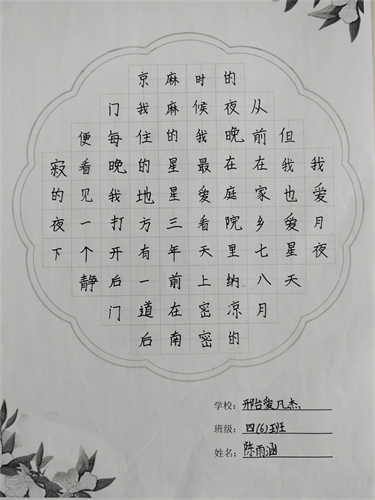 我爱月夜
但我也爱星天
从前在家乡七八月
的夜晚在庭院里纳凉的
时候我最爱看天上密密
麻麻的星星三年前在南
京我住的地方有一道后
门每晚我打开后门
便看见一个静
寂的夜下
学校:邢台爱凡杰
班级:四(6)班
姓名:陈雨涵